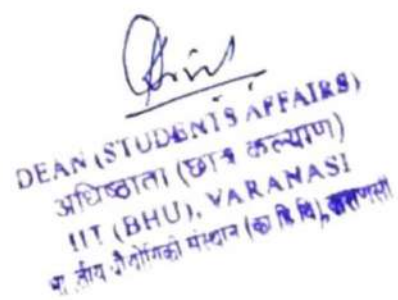 DEAN (STUDENTS AFFAIRS)
अधिष्ठाता (छात्र कल्याण)
IIT (BHU), VARANASI
संस्थान (का हि वि), वाराणसी